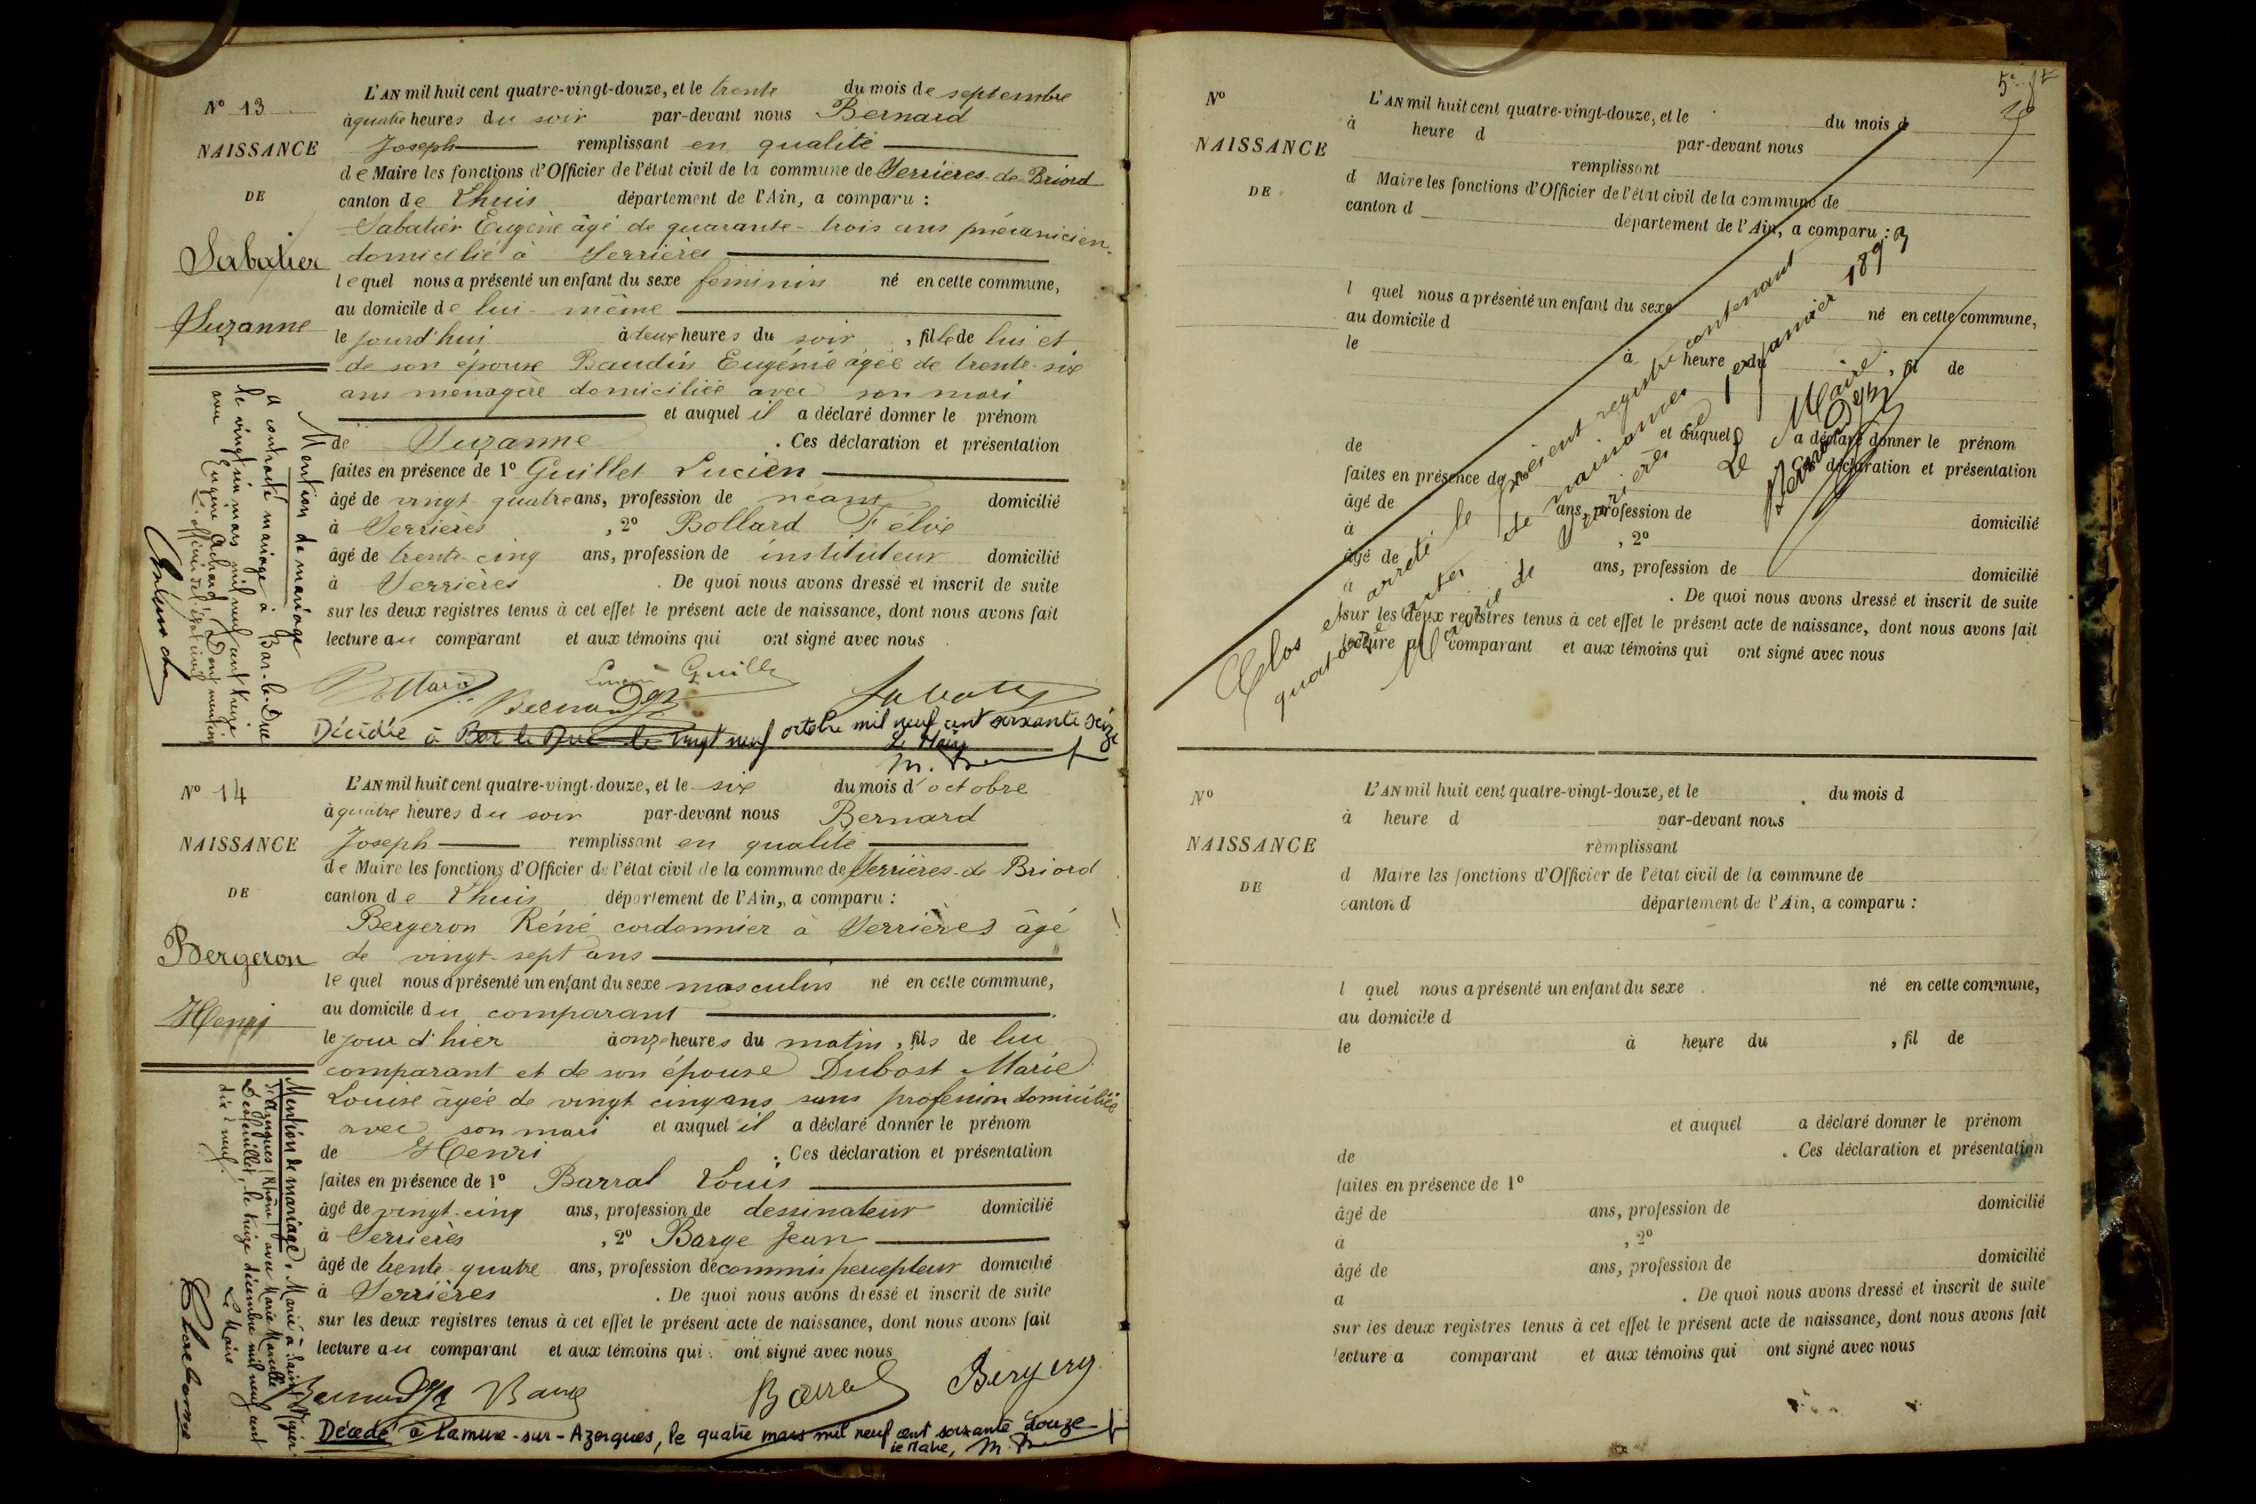 Nº 13
NAISSANCE
DE
Sabatier
Suzanne
L'AN mil huit cent quatre-vingt-douze, et le trente du mois de septembre
à quatre heures du soir par-devant nous Bernard
Joseph remplissant en qualité
de Maire les fonctions d'Officier de l'état civil de la commune de Serrières-de-Briord
canton de Lhuis département de l'Ain, a comparu :
Sabatier Eugène âgé de quarante-trois ans mécanicien
domicilié à Serrières
lequel nous a présenté un enfant du sexe féminin né en cette commune,
au domicile de lui-même
le jourd'hui à deux heures du soir, fille de lui et
de son épouse Baudin Eugénie âgée de trente-six
ans ménagère domiciliée avec son mari
et auquel il a déclaré donner le prénom
de Suzanne. Ces déclaration et présentation
faites en présence de 1º Guillet Lucien
âgé de vingt-quatre ans, profession de néant domicilié
à Serrières, 2º Bollard Félix
âgé de trente-cinq ans, profession de instituteur domicilié
à Serrières. De quoi nous avons dressé et inscrit de suite
sur les deux registres tenus à cet effet le présent acte de naissance, dont nous avons fait
lecture au comparant et aux témoins qui ont signé avec nous
Mention de mariage
a contracté mariage à Bar-le-Duc
le vingt-un mars mil neuf cent treize
avec Eugène Achard, Dont mention
L'officier de l'état civil
Bollard
Lucien Guillet
Bernard
Sabatier
Décédée à Bar le Duc le vingt neuf octobre mil neuf cent soixante seize
Le Maire
Nº 14
NAISSANCE
DE
Bergeron
Henri
L'AN mil huit cent quatre-vingt-douze, et le six du mois d'octobre
à quatre heures du soir par-devant nous Bernard
Joseph remplissant en qualité
de Maire les fonctions d'Officier de l'état civil de la commune de Serrières-de-Briord
canton de Lhuis département de l'Ain, a comparu :
Bergeron Réné cordonnier à Serrières âgé
de vingt-sept ans
lequel nous a présenté un enfant du sexe masculin né en cette commune,
au domicile du comparant
le jour d'hier à onze heures du matin, fils de lui
comparant et de son épouse Dubost Marie
Louise âgée de vingt cinq ans sans profession domiciliée
avec son mari et auquel il a déclaré donner le prénom
de Henri. Ces déclaration et présentation
faites en présence de 1º Barral Louis
âgé de vingt-cinq ans, profession de dessinateur domicilié
à Serrières, 2º Barge Jean
âgé de trente quatre ans, profession de commis percepteur domicilié
à Serrières. De quoi nous avons dressé et inscrit de suite
sur les deux registres tenus à cet effet le présent acte de naissance, dont nous avons fait
lecture au comparant et aux témoins qui ont signé avec nous
Mention de mariage. Marié à
d'Azergues (Rhône) avec Marie Marcelle
le treize décembre mil neuf cent
dix neuf.
Le Maire
Bernard
Barge
Barral
Bergeron
Décédé à Lamure-sur-Azergues, le quatre mars mil neuf cent soixante douze
le Maire,
Nº
NAISSANCE
DE
L'AN mil huit cent quatre-vingt-douze, et le du mois d
à heure d par-devant nous
remplissant
d Maire les fonctions d'Officier de l'état civil de la commune de
canton d département de l'Ain, a comparu :
l quel nous a présenté un enfant du sexe né en cette commune,
au domicile d
le à heure du , fil de
et auquel a déclaré donner le prénom
de . Ces déclaration et présentation
faites en présence de
âgé de ans, profession de domicilié
à , 2º
âgé de ans, profession de domicilié
à . De quoi nous avons dressé et inscrit de suite
sur les deux registres tenus à cet effet le présent acte de naissance, dont nous avons fait
lecture a comparant et aux témoins qui ont signé avec nous
Clos et arrêté le présent registre contenant
quatorze actes de naissances
Mairie de Serrières le 1er janvier 1893
Le Maire
Bernard
Nº
NAISSANCE
DE
L'AN mil huit cent quatre-vingt-douze, et le du mois d
à heure d par-devant nous
remplissant
d Maire les fonctions d'Officier de l'état civil de la commune de
canton d département de l'Ain, a comparu :
l quel nous a présenté un enfant du sexe né en cette commune,
au domicile d
le à heure du , fil de
et auquel a déclaré donner le prénom
de . Ces déclaration et présentation
faites en présence de 1º
âgé de ans, profession de domicilié
à , 2º
âgé de ans, profession de domicilié
a . De quoi nous avons dressé et inscrit de suite
sur les deux registres tenus à cet effet le présent acte de naissance, dont nous avons fait
lecture a comparant et aux témoins qui ont signé avec nous